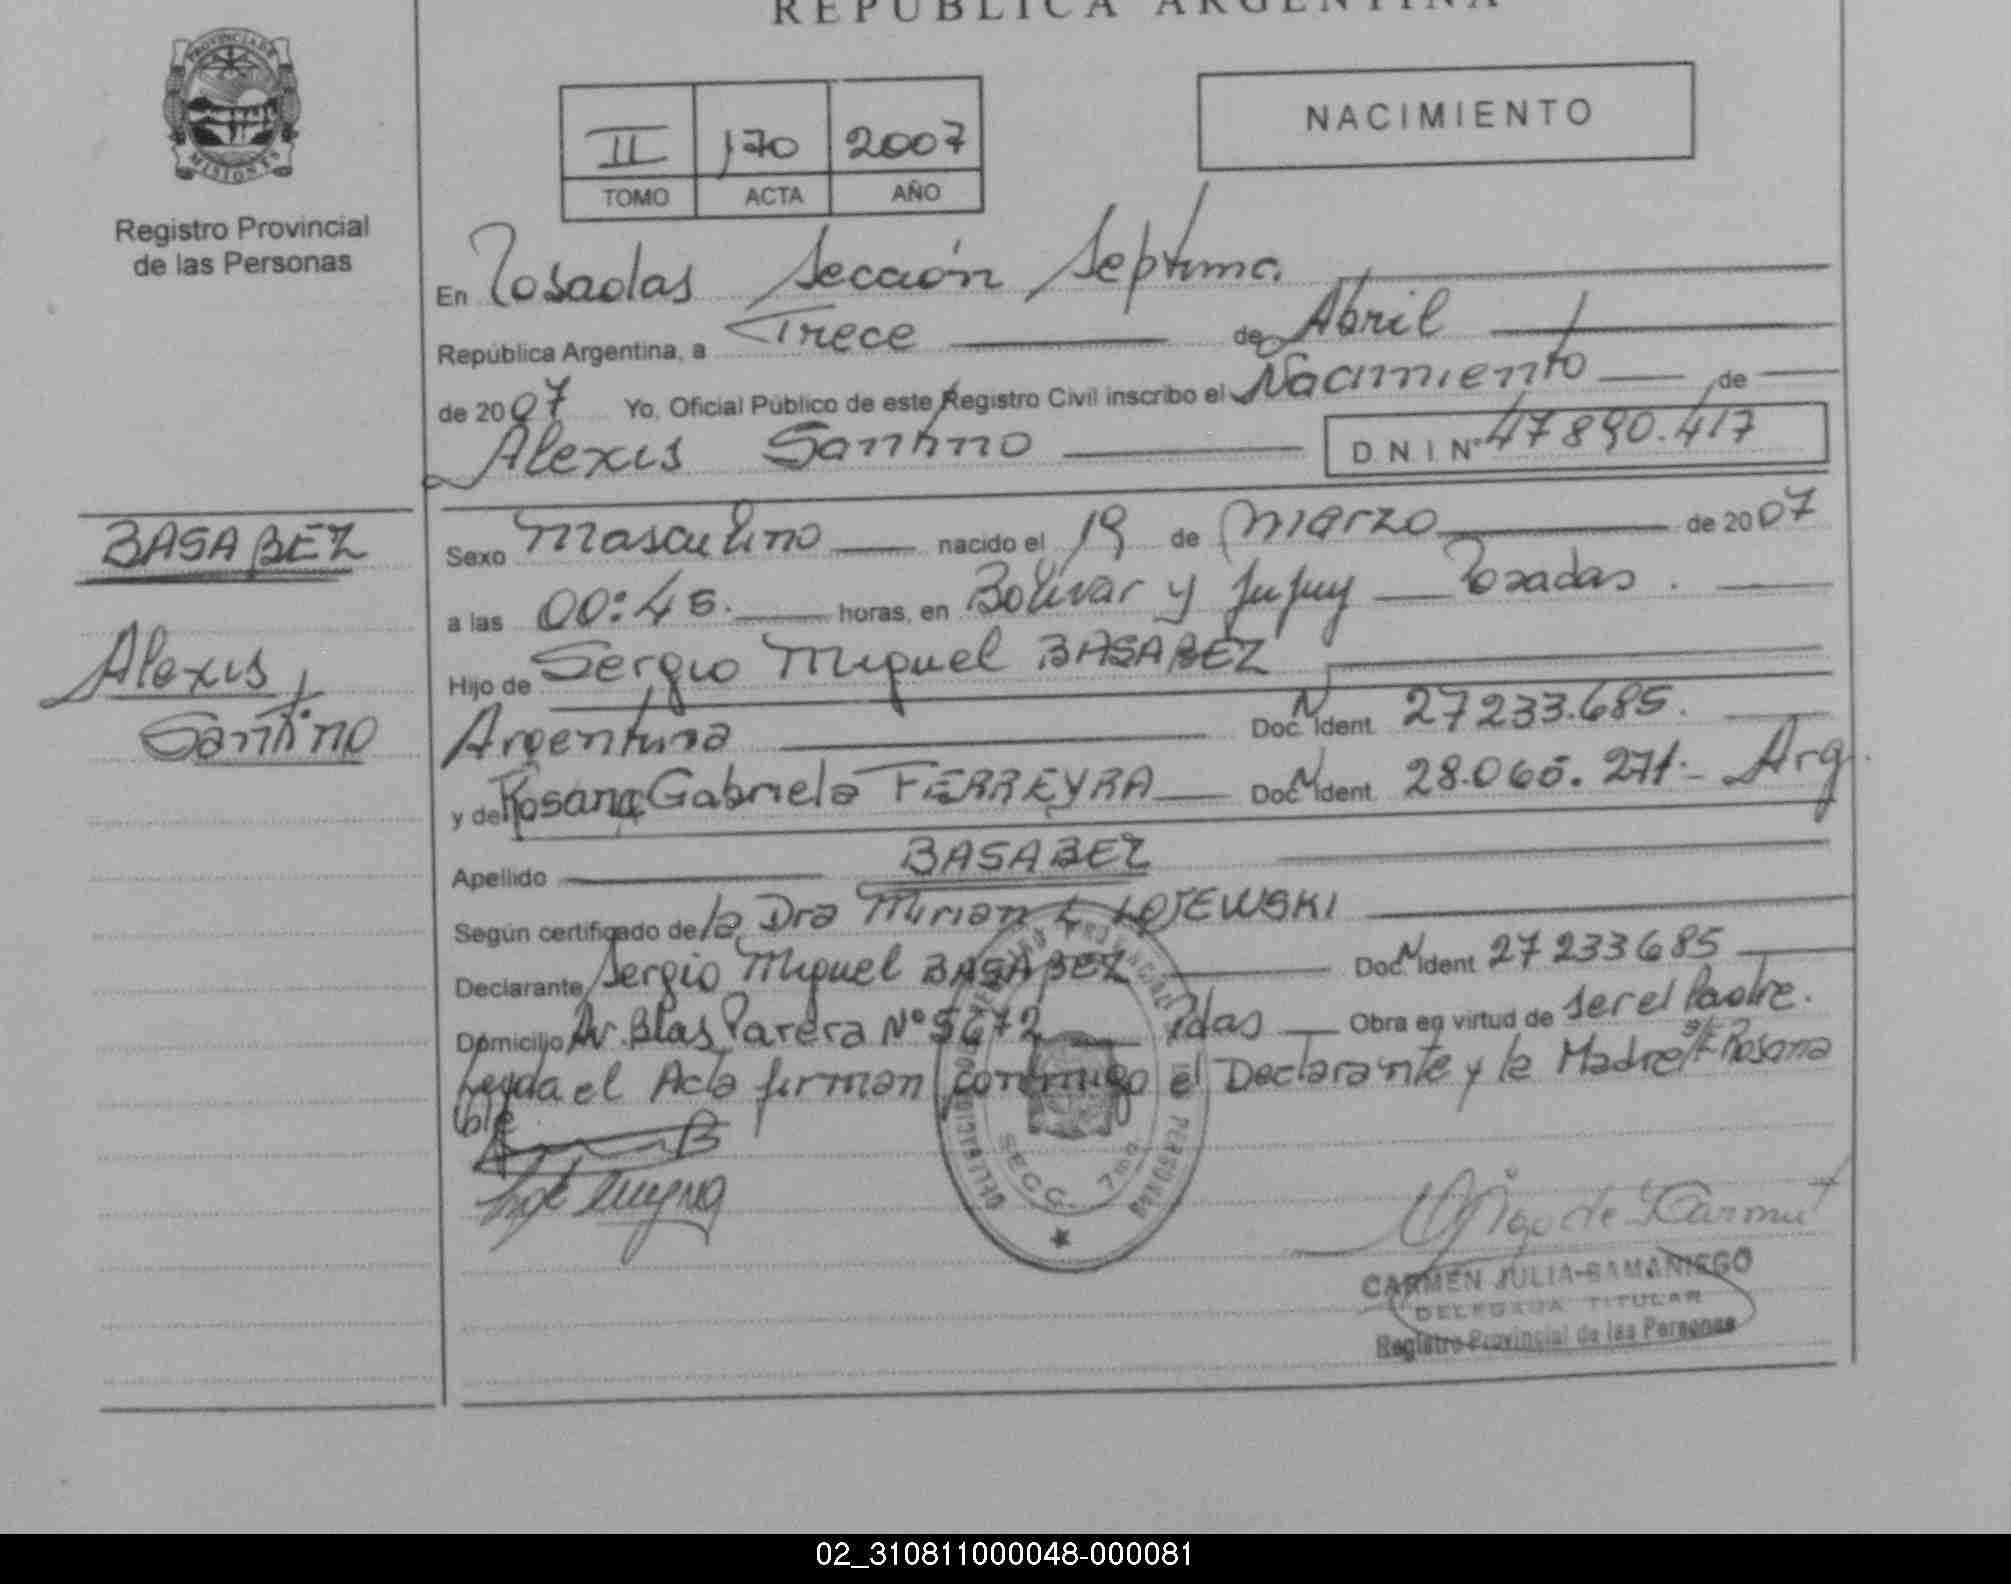 REPUBLICA ARGENTINA
PROVINCIA DE
MISIONES
Registro Provincial
de las Personas
II 170 2007
TOMO ACTA AÑO
NACIMIENTO
En Posadas Sección Septima
República Argentina, a Trece de Abril
de 2007 Yo, Oficial Público de este Registro Civil inscribo el Nacimiento de
Alexis Santino D.N.I. Nº 47890.417
BASABEZ
Alexis
Santino
Sexo Masculino nacido el 19 de Marzo de 2007
a las 00:45. horas, en Bolivar y Jujuy Posadas.
Hijo de Sergio Miguel BASABEZ
Argentina Doc. N Ident. 27233.685.
y de Rosana Gabriela FERREYRA Doc. N Ident. 28.065.271.- Arg.
Apellido BASABEZ
Según certificado de la Dra Mirian L LOJEWSKI
Declarante Sergio Miguel BASABEZ Doc. N Ident 27233685
Domicilio Av. Blas Parera Nº 5672 Pdas Obra en virtud de ser el Padre.
Leyda el Acta firman conmigo el Declarante y la Madre S/E Rosana
Vale
SECC. 7ma
CARMEN JULIA SAMANIEGO
DELEGADA TITULAR
Registro Provincial de las Personas
02_310811000048-000081